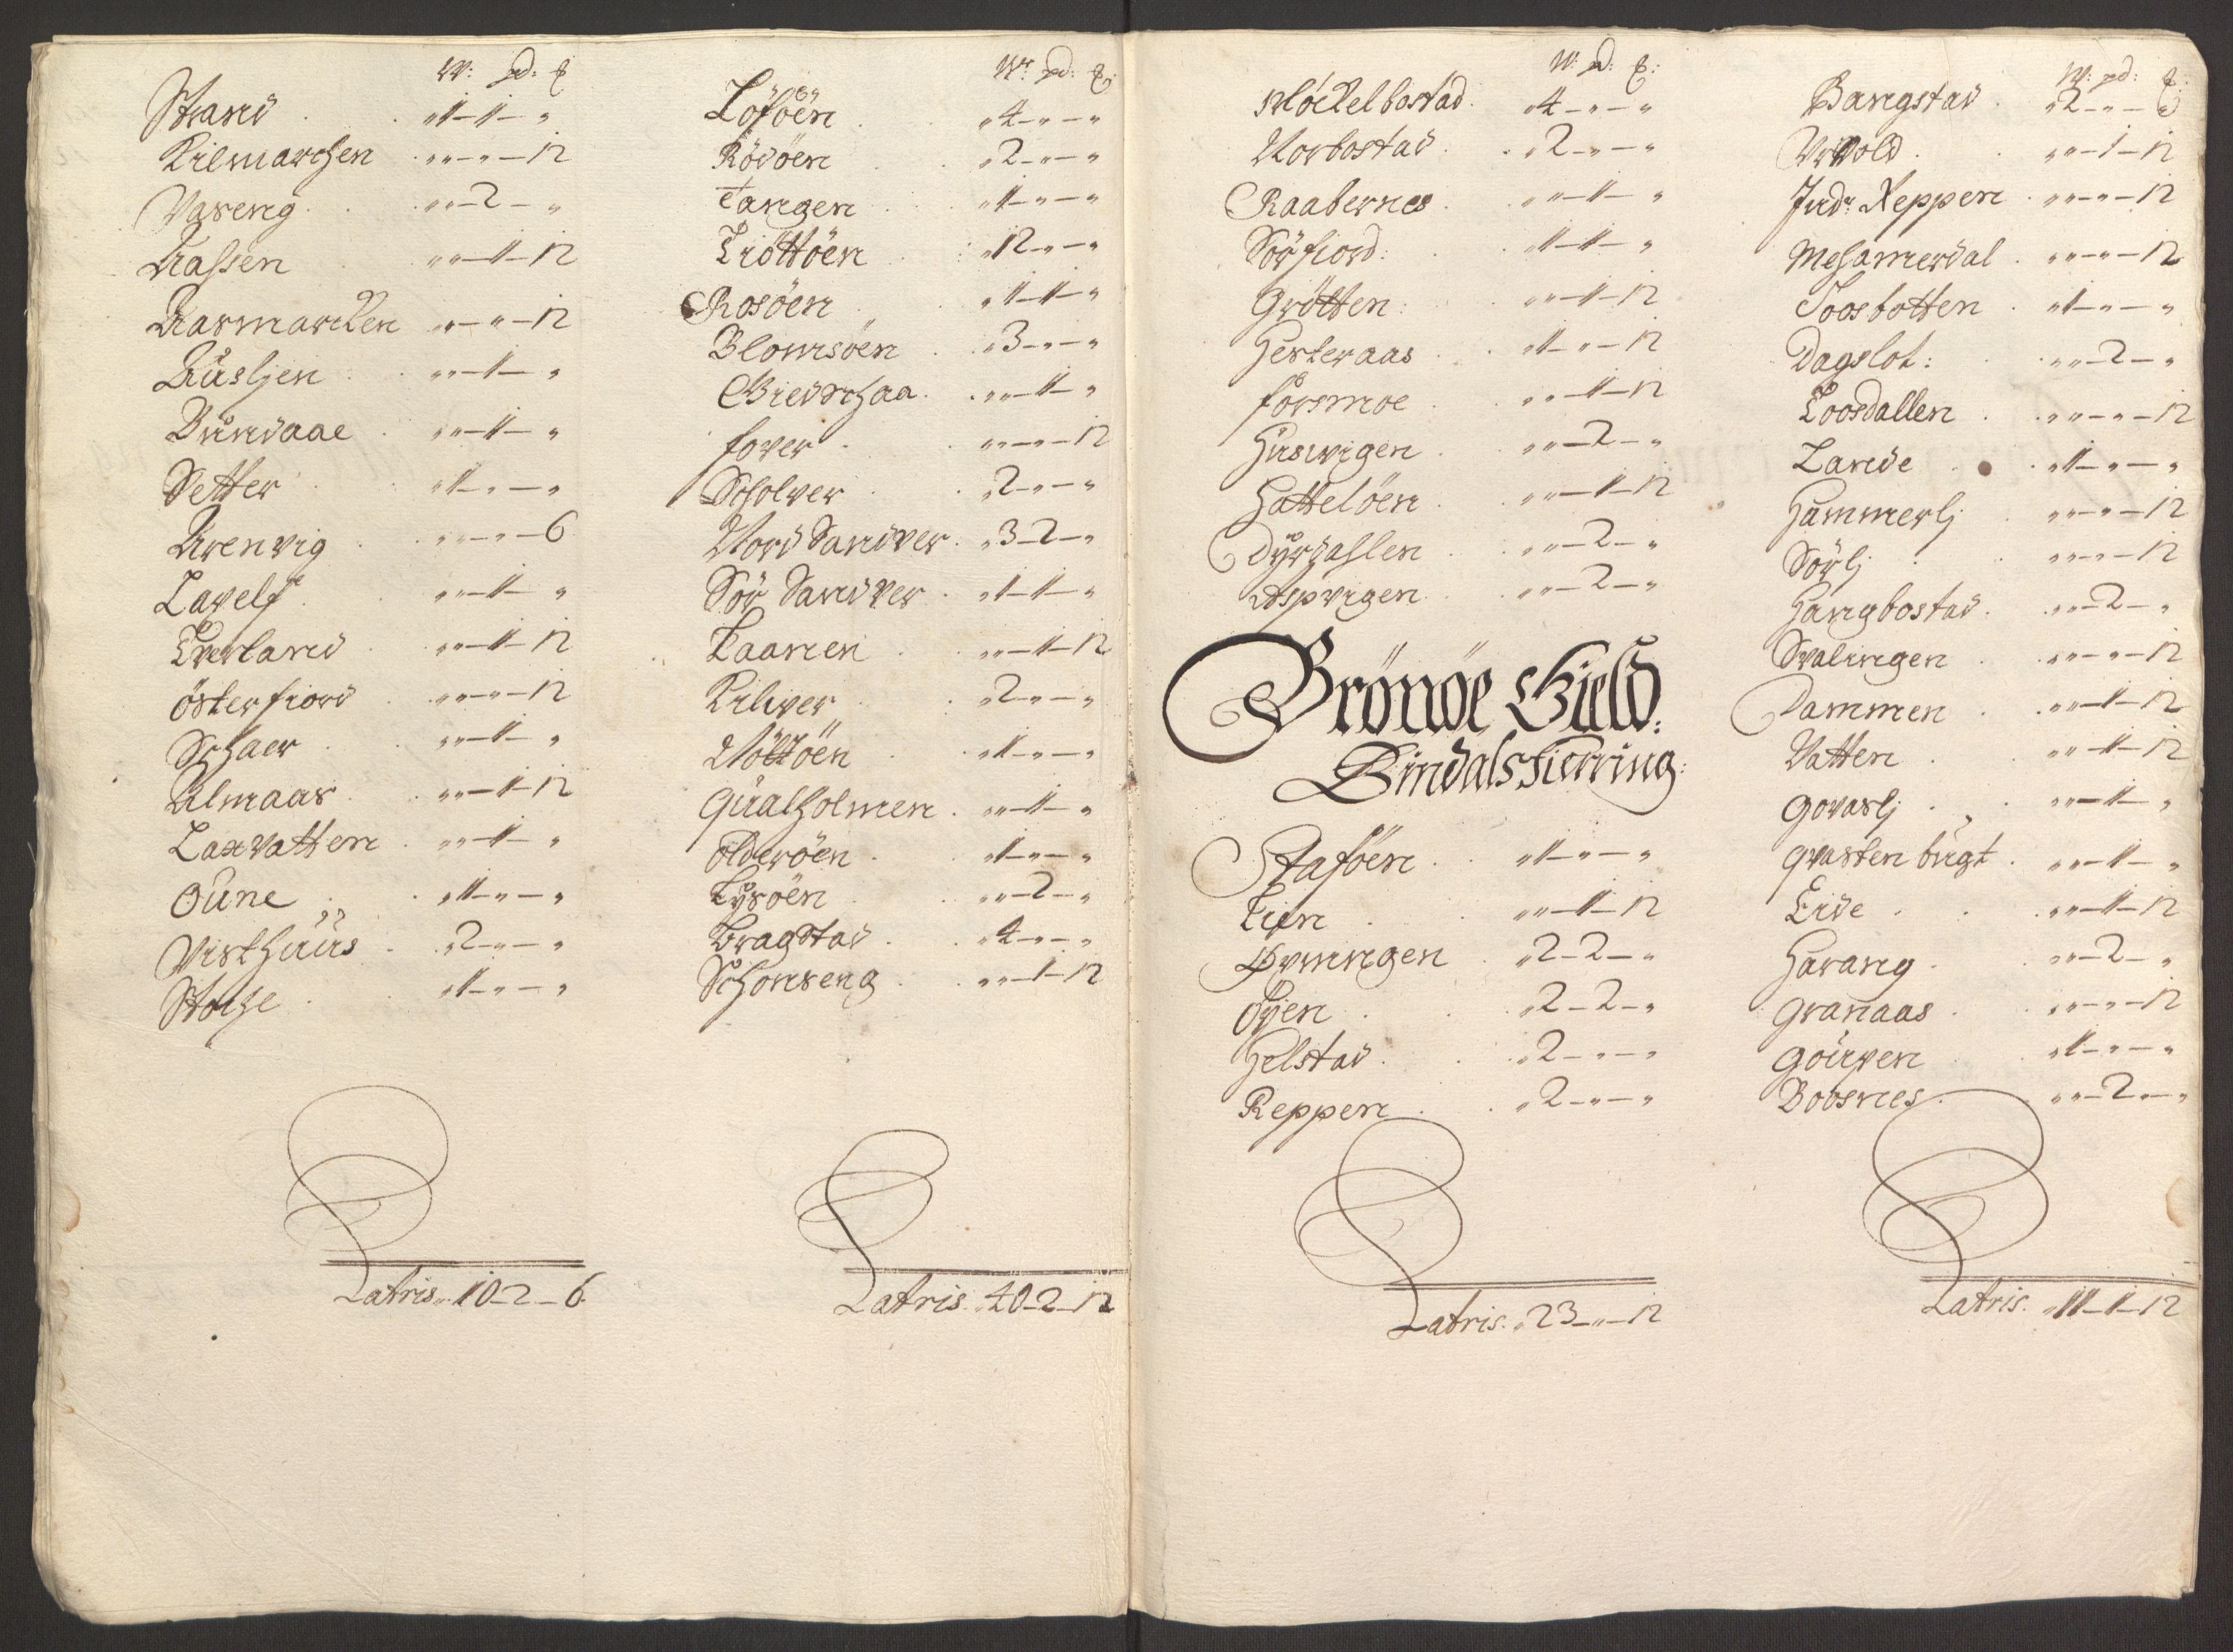 W: pd: ℔
Strand . . „1-1- „
Kilmarchen . „„-„-12
Vaseng . . „„-2- „
Aassen „„-1-12
Aasmarcken „„-„-12
Aüsljen . „„-1- „
Bündaae . „„-1- „
Setter . „1-„- „
Arenvig . „„-„-6
Lavelf . „„-1- „
Everland . „„-1-12
österfiord . „„-„-12
Schaer . „„-1- „
Almaas . „„-1-12
Laxvatten . „„-1- „
Oüne . „1-„- „
Visthüüs . „2-„- „
Stoche . „1-„- „
Latris „10-2-6
Wr pd: ℔:
Löföen . „4-„-„
Rödöen . „2-„-„
Tangen . „1-„-„
Tiöttöen . „12-„-„
Rosöen . „1-1-„
Blomsöen . „3-„-„
Giedschaa . „„-1-„
fover . „„-„-12
Scholver . „2-„-„
Nord Sandver . „3-2-„
Sör Sandver . „1-1-„
Laanen . „„-1-12
Kilver . „2-„-„
Nöttöen . „1-„-„
Qüalholmen . „„-1-„
Olderöen . „1-„-„
Lysöen . „„-2-„
Bragstad . „4-„-„
Schonseng . „„-1-12
Latris „40-2-12
W: pd: ℔:
Möckelbostad . „4-„-„
Norbostad . „2-„-„
Raabernes . „„-1-„
Sörfiord: „1-1-„
Grötten: „„-1-12
Hesteraas . „1-„-12
forsmoe . „„-1-12
Hüsvigen . „„-2-„
Hattelöen . „„-1-12
Dyrdahlen . „„-2-„
Aspvigen . „„-2-„
Brönöe Gield:
Bindals Fierring:
Staföen . „1-„-„
Lien . „„-1-12
Øvningen . „2-2-„
Øyen . „2-2-„
Helstad . „2-„-„
Reppen . „2-„-„
Latris „23-„-12
W: pd: ℔:
Bangstad . „2-„-„
Vivold . „„-1-12
Indr Reppen . „„-„-12
Mehamerdal . „„-„-12
Toosbotten . „1-„-„
Dagslot: „„-2-„
Toosdallen . „„-„-12
Lande . „1-„-„
Hammerlj . „„-„-12
Sörlj . „„-„-12
Hangbostad . „„-2-„
Svalingen . „„-„-12
Dammen . „„-1-12
Vatten . „„-1-12
Govaslj . „„-1-„
qvasten bügt . „„-1-„
Eide . „„-1-12
Harang . „„-2-„
Granaas . „„-„-12
Göürven „1-„-„
Boosnes . „„-2-„
Latris „11-1-12